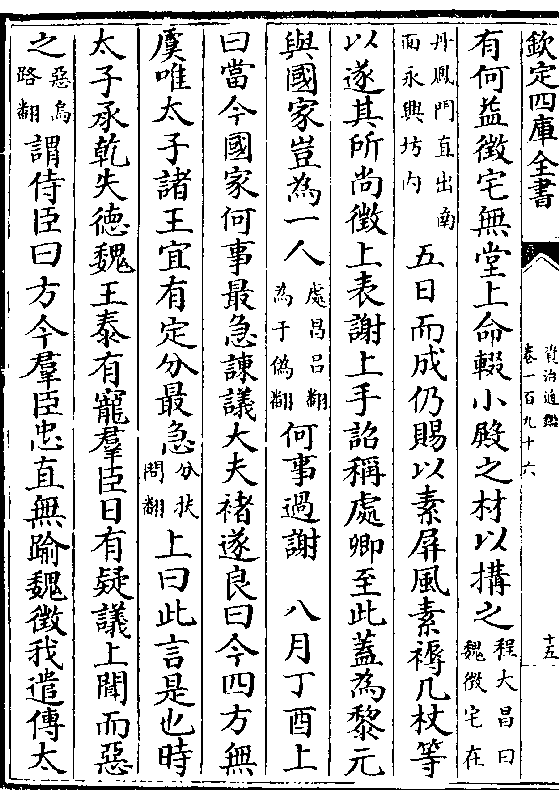 欽定四庫全書
資治通鑑
卷一百九十六
十五
有何益徵宅無堂上命輟小殿之材以搆之程大昌曰魏徵宅在
丹鳳門直出南面永興坊内五日而成仍賜以素屏風素褥几杖等
以遂其所尚徵上表謝上手詔稱處卿至此蓋為黎元
與國家豈為一人處昌吕翻為于偽翻何事過謝　八月丁酉上
曰當今國家何事最急諫議大夫褚遂良曰今四方無
虞唯太子諸王宜有定分最急分扶問翻上曰此言是也時
太子承乾失德魏王泰有寵羣臣日有疑議上聞而惡
之惡烏路翻謂侍臣曰方今羣臣忠直無踰魏徵我遣傅太